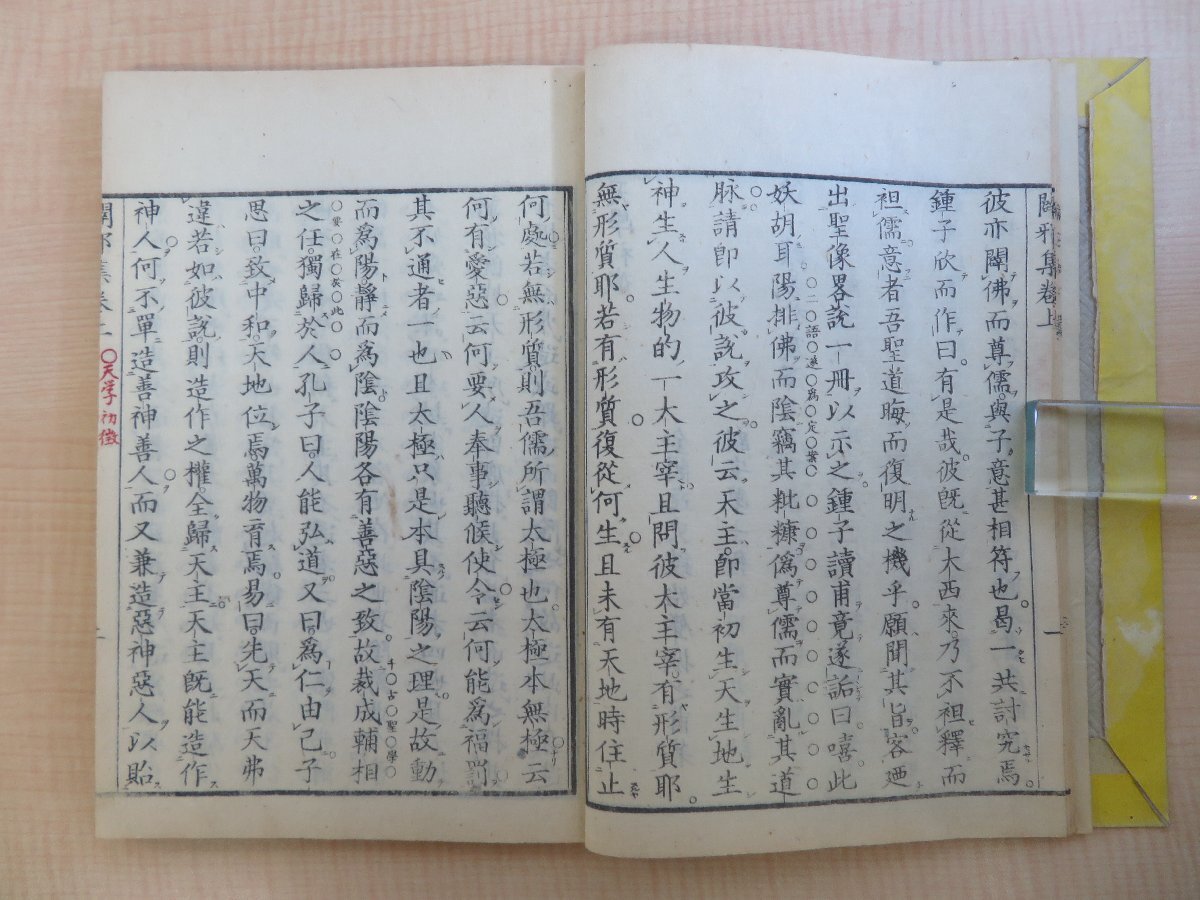 闢邪集卷上
彼亦闢佛而尊儒與子意甚相符也曷一共討究焉
鍾子欣而作曰有是哉彼旣從大西來乃不袒釋而
袒儒意者吾聖道晦而復明之機乎願聞其旨容迺
出聖像畧說一冊以示之鍾子讀甫竟遂詬曰嘻此
二語遂爲定案
妖胡耳陽排佛而陰竊其粃糠僞尊儒而實亂其道
脉請卽以彼說攻之彼云天主卽當初生天生地生
神生人生物的一大主宰且問彼大主宰有形質耶
無形質耶若有形質復從何生且未有天地時住止
何處若無形質則吾儒所謂太極也太極本無極云
何有愛惡云何要人奉事聽候使令云何能爲福罰
其不通者一也且太極只是本具陰陽之理是故動
而爲陽靜而爲陰陰陽各有善惡之致故裁成輔相
千古聖學
要在於此
之任獨歸於人孔子曰人能弘道又曰爲仁由己子
思曰致中和天地位焉萬物育焉易曰先天而天弗
違若如彼說則造作之權全歸天主天主旣能造作
神人何不單造善神善人而又兼造惡神惡人以貽
〇天學初徴